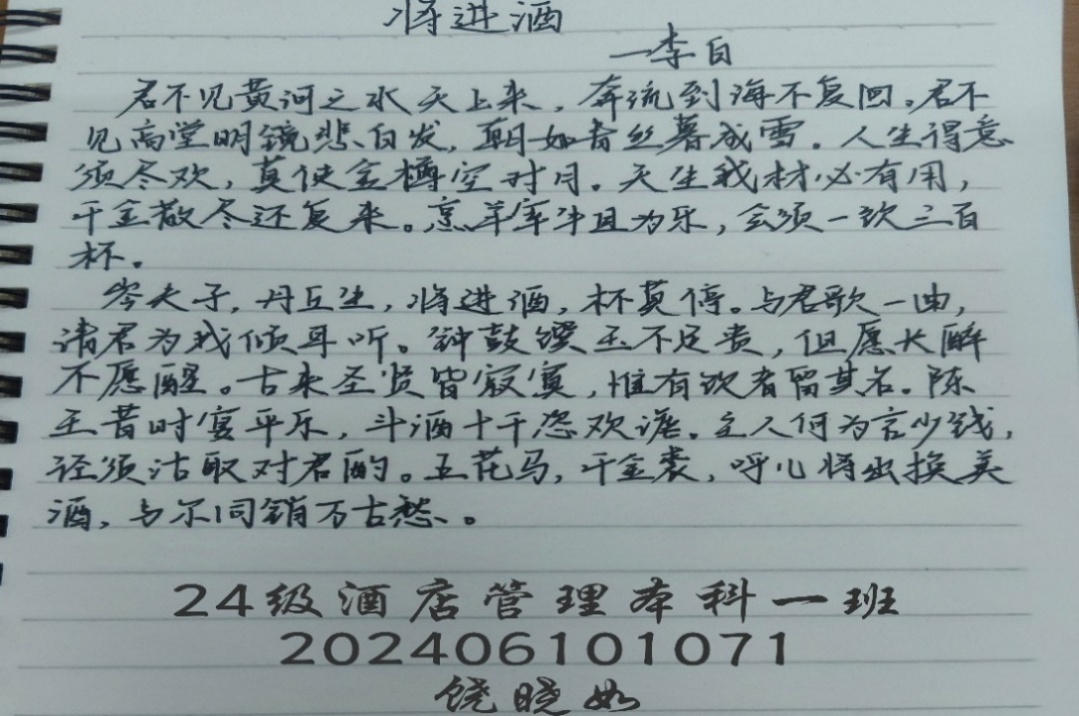 将进酒
一李白
君不见黄河之水天上来，奔流到海不复回。君不
见高堂明镜悲白发，朝如青丝暮成雪。人生得意
须尽欢，莫使金樽空对月。天生我材必有用，
千金散尽还复来。烹羊宰牛且为乐，会须一饮三百
杯。
岑夫子，丹丘生，将进酒，杯莫停。与君歌一曲，
请君为我倾耳听。钟鼓馔玉不足贵，但愿长醉
不愿醒。古来圣贤皆寂寞，惟有饮者留其名。陈
王昔时宴平乐，斗酒十千恣欢谑。主人何为言少钱，
径须沽取对君酌。五花马，千金裘，呼儿将出换美
酒，与尔同销万古愁。
24级酒店管理本科一班
202406101071
饶晓如